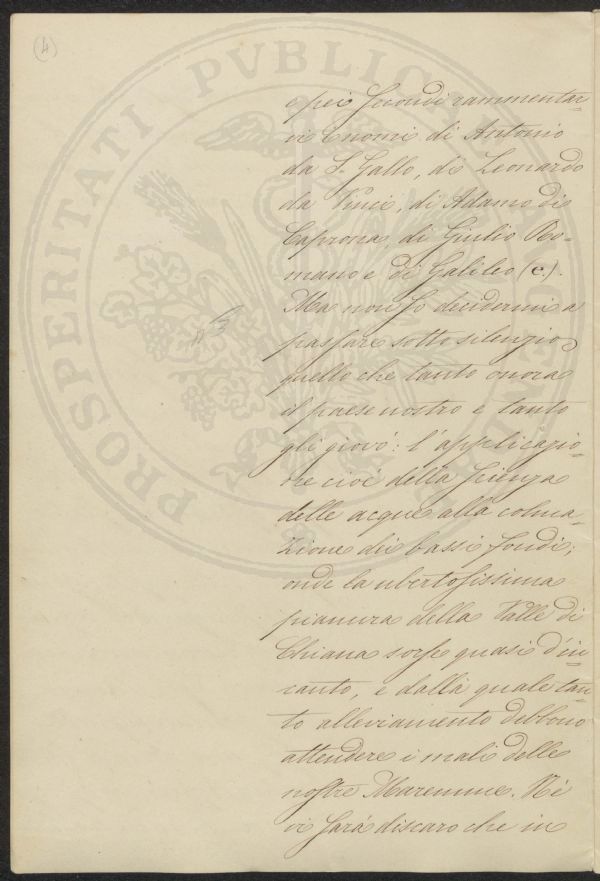 (4)
PROSPERITATI PVBLICAE
e pei secondi rammentar-
vi i nomi di Antonio
da S. Gallo, di Leonardo
da Vinci, di Adamo di
Caprona, di Giulio Ro-
mano e di Galileo (e).
Ma non so decidermi a
passare sotto silenzio
quello che tanto onora
il paese nostro e tanto
gli giovò: l'applicazio-
ne cioè della scienza
delle acque alla colma-
zione dei bassi fondi;
onde la ubertosissima
pianura della Valle di
Chiana sorse quasi d'in-
canto, e dalla quale tan-
to alleviamento debbono
attendere i mali delle
nostre Maremme. Nè
vi sarà discaro che in